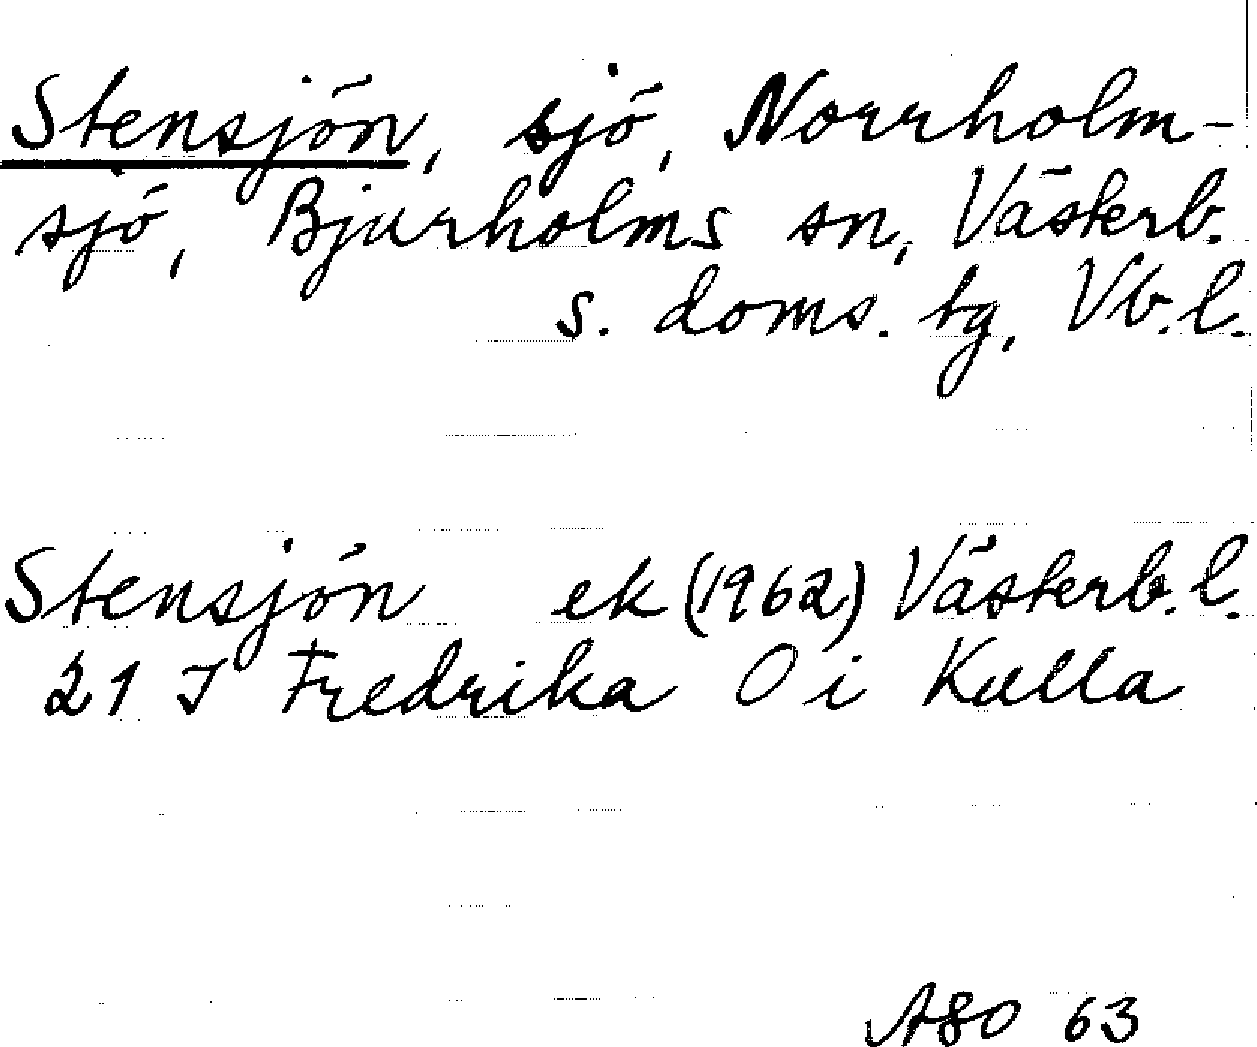 Stensjön, sjö, Norrholm-
sjö, Bjurholms sn, Västerb.
s. doms. tg, Vb. l.
Stensjön ek (1962) Västerb. l.
21 J Fredrika O i Kulla
ASO 63